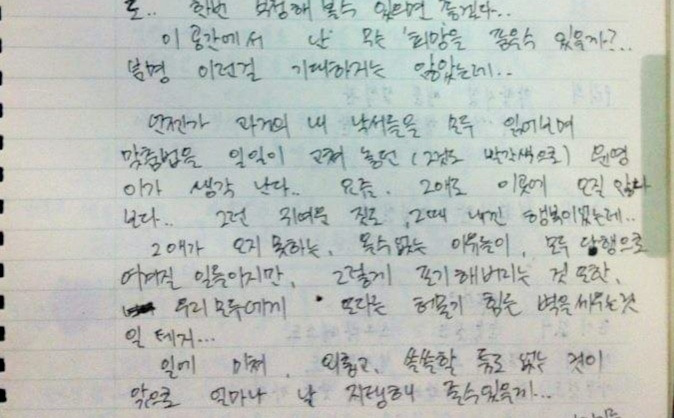 도.. 한번 보정해 볼수 있으면 좋겠다..
이 공간에서 난 무슨 '희망을 품을수 있을까?..
분명 이런걸 기대하지는 않았는데..
언젠가 과거의 내 낙서들을 모두 읽어보며
맞춤법을 일일이 고쳐 놓던 (그것도 빨간색으로) 윤영
이가 생각 난다.. 요즘. 그애도 이곳에 오질 않나
보다.. 그런 귀여움 진도, 그때 내낀 행복이었는데..
그애가 오지 못하는, 올수없는 이유들이, 모두 당행으로
여겨질 일들이지만, 그렇게 포기해버리는 것 또한,
우리 모두에게 또다른 허물기 힘든 벽을 세우는것
일 테지...
일에 미쳐, 외롭고, 쓸쓸할 틈도 없는 것이
앞으로 얼마나 날 지탱해 줄수있을까...